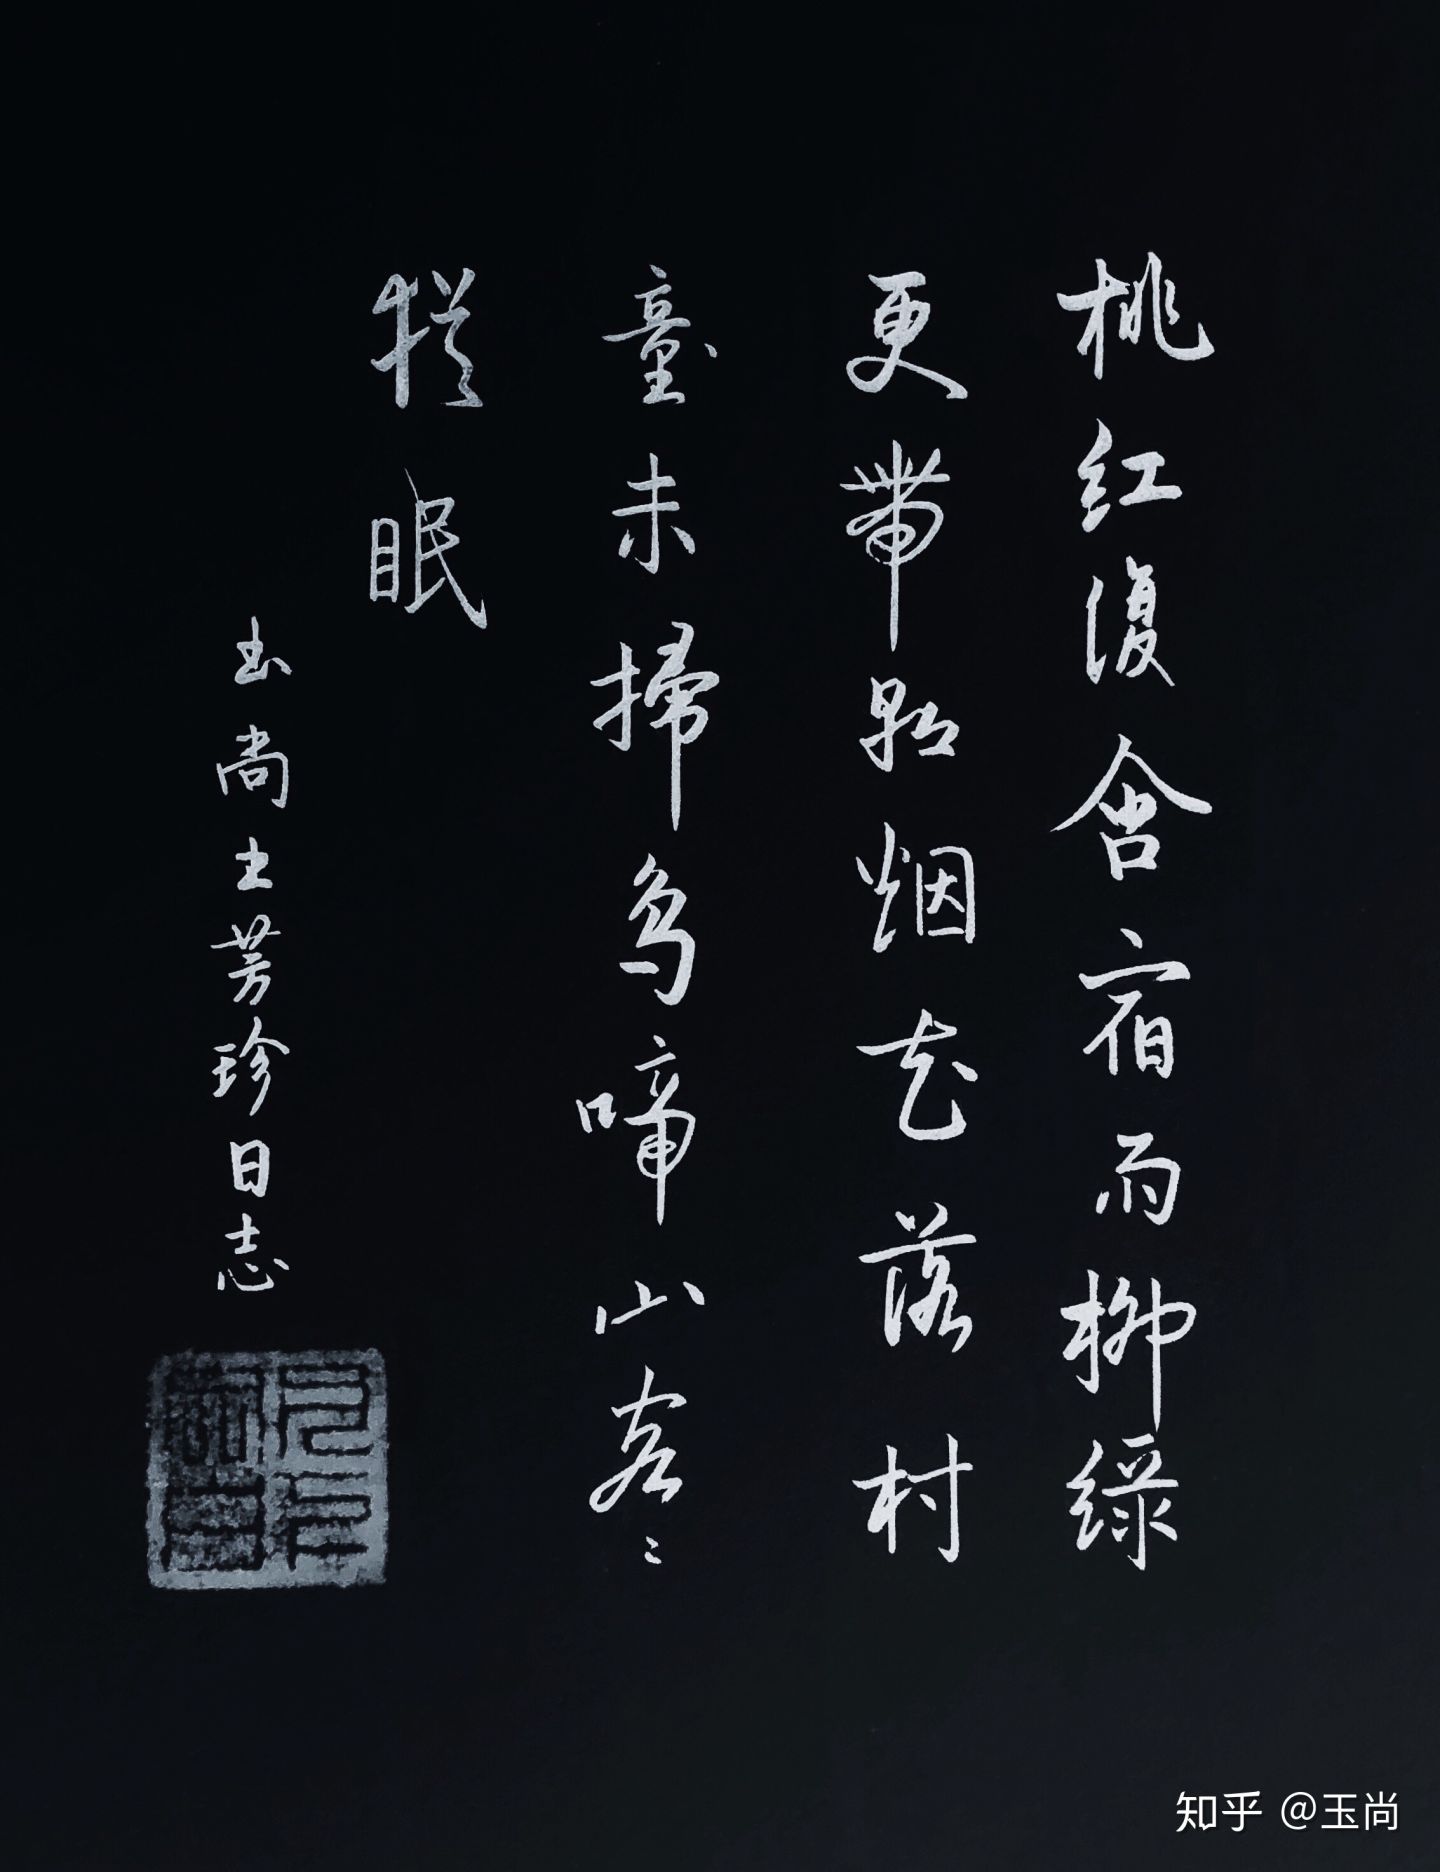 桃红復含宿雨柳緑
更帶朝烟花落村
童未掃鳥啼山客〻
猶眠
玉尚芳珍日志
知乎 @玉尚